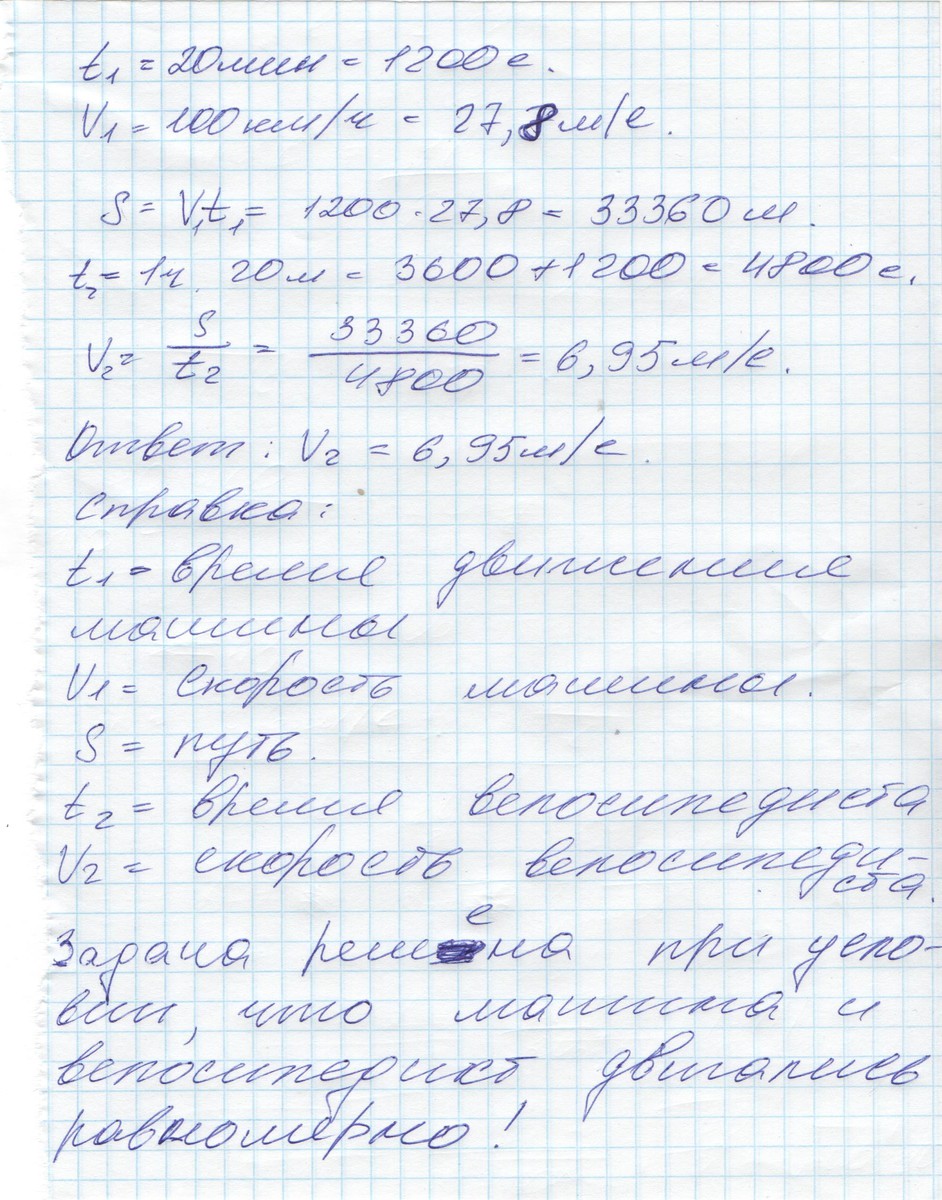 t₁ = 20мин = 1200с.
V₁ = 100км/ч = 27,8м/с.
S = V₁t₁ = 1200·27,8 = 33360м.
t₂ = 1ч. 20м = 3600+1200 = 4800с.
V₂ = S/t₂ = 33360/4800 = 6,95м/с.
Ответ: V₂ = 6,95м/с.
Справка:
t₁ = время движения
машины
V₁ = Скорость машины.
S = путь.
t₂ = время велосипедиста
V₂ = скорость велосипеди-
ста.
Задача решена при усло-
вии, что машина и
велосипедист двигались
равномерно!